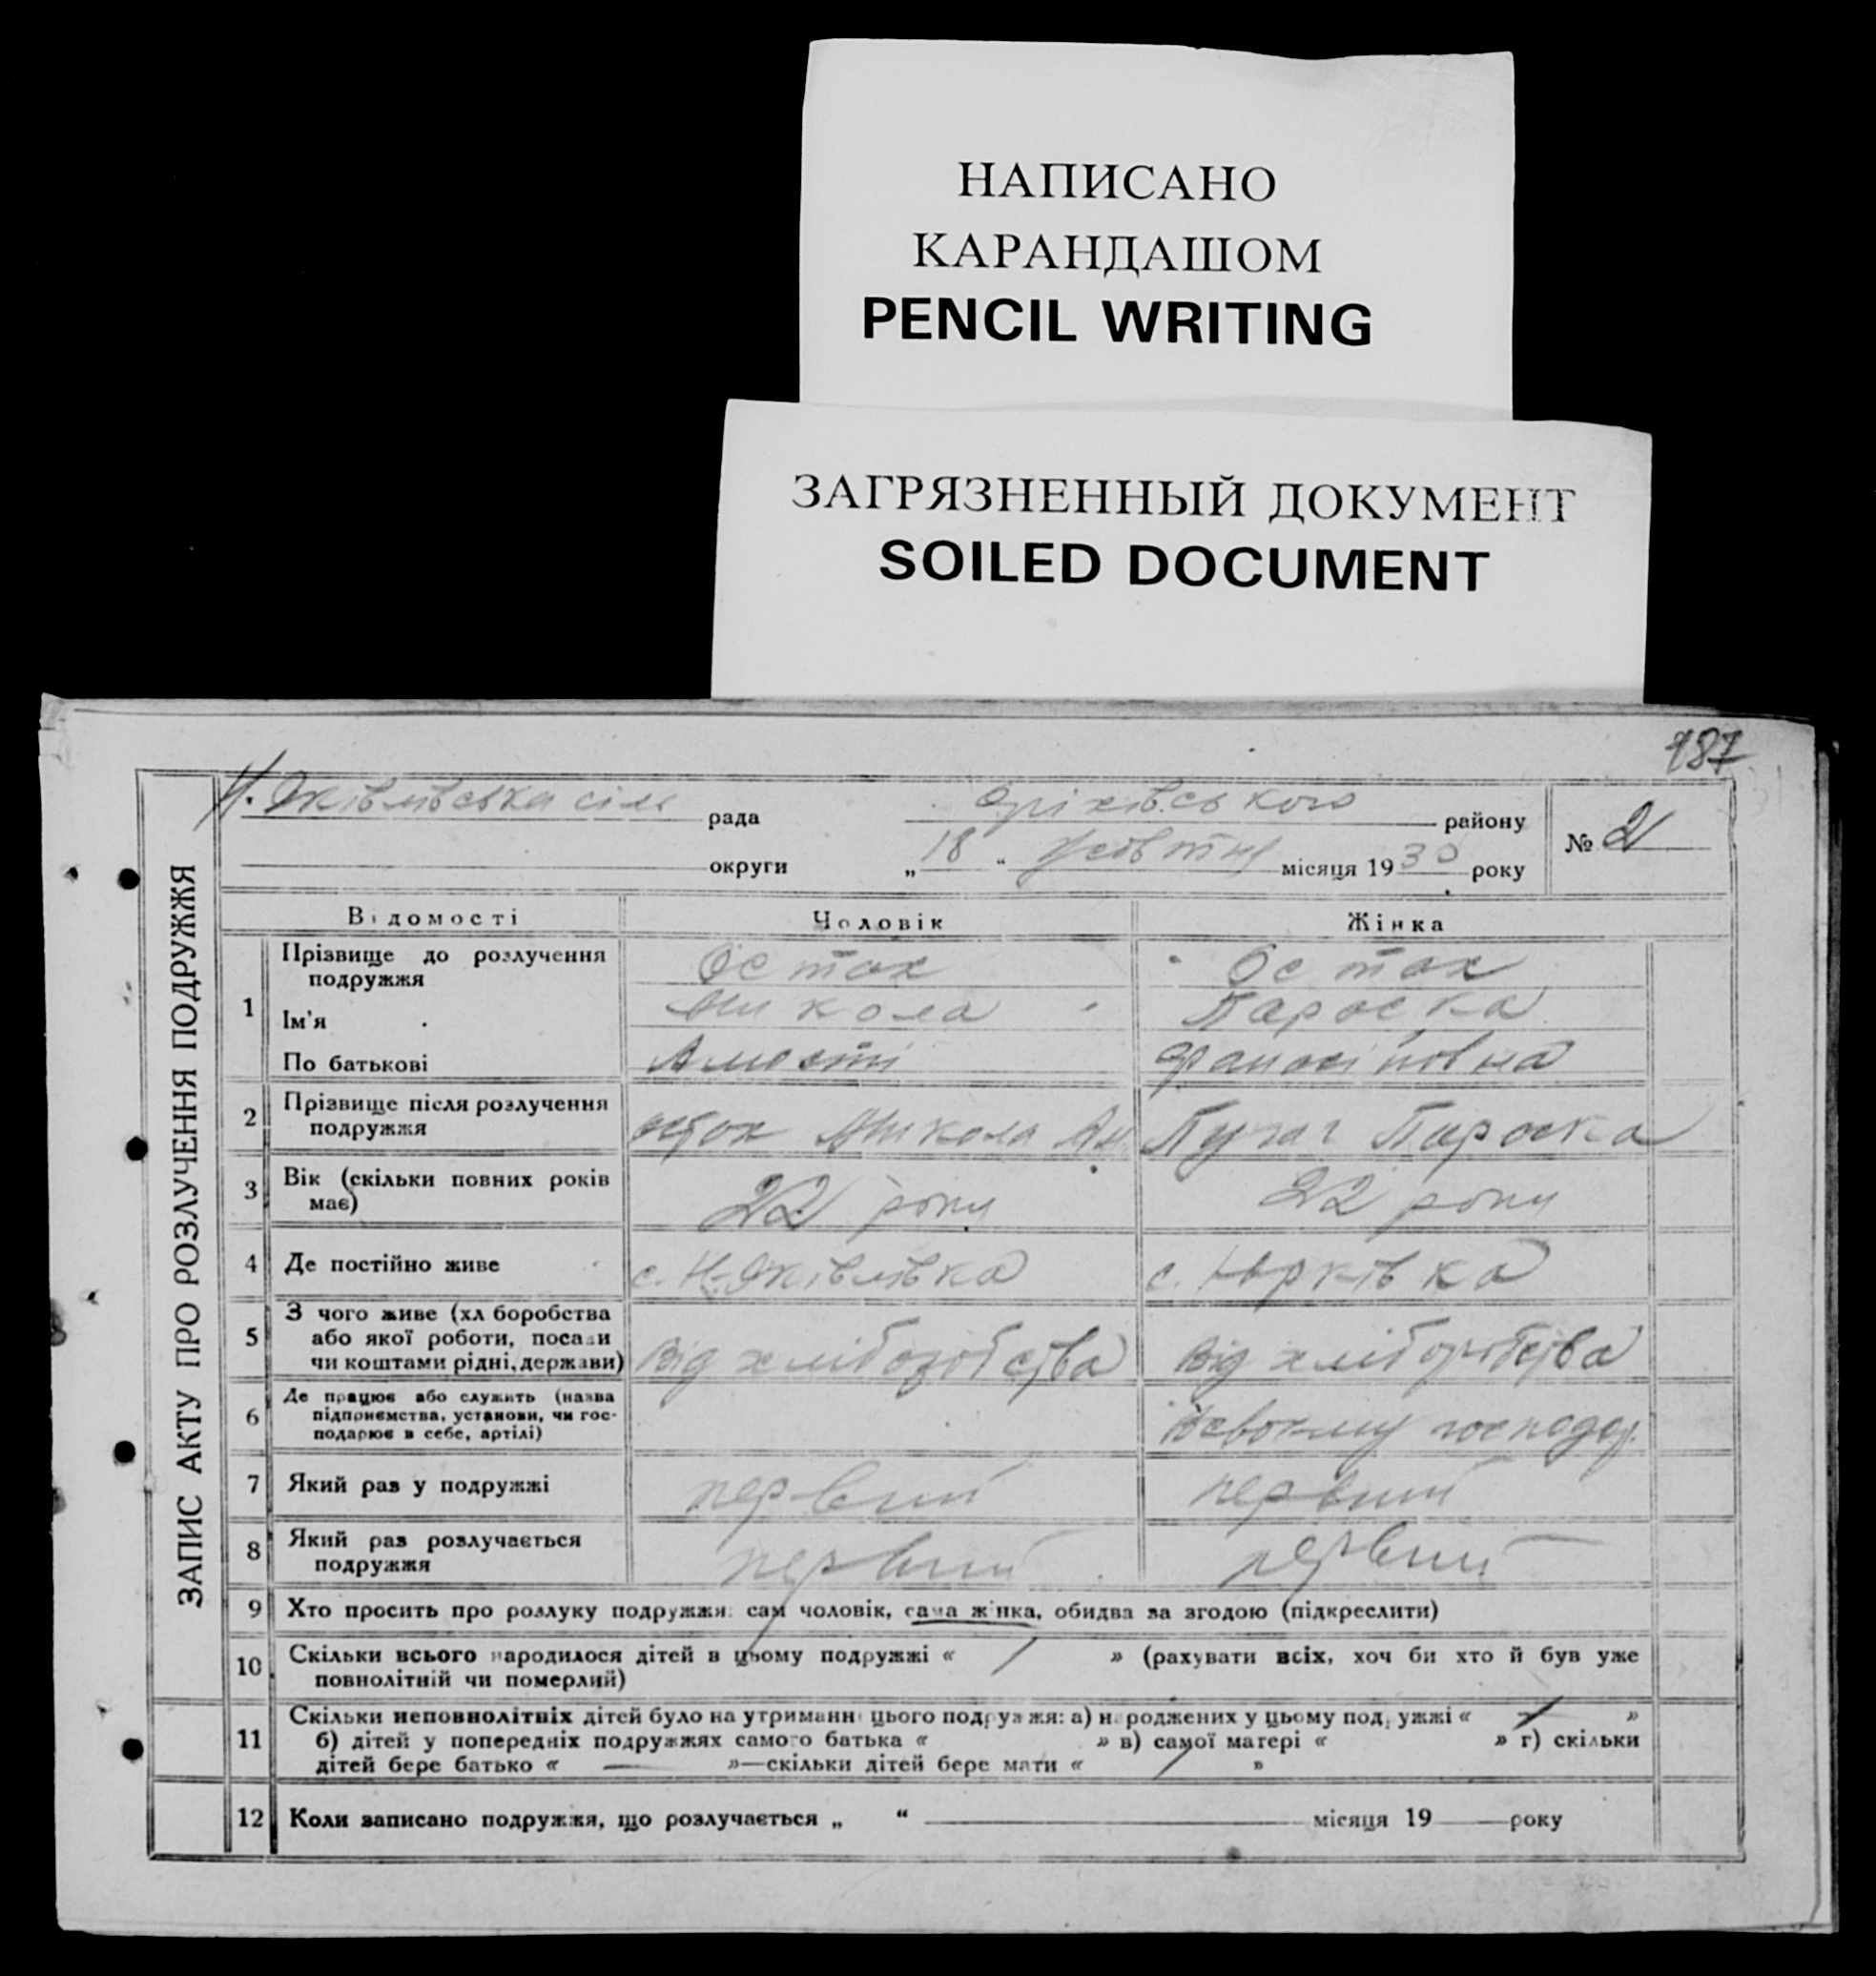 НАПИСАНО
КАРАНДАШОМ
PENCIL WRITING
ЗАГРЯЗНЕННЫЙ ДОКУМЕНТ
SOILED DOCUMENT
187
ЗАПИС АКТУ ПРО РОЗЛУЧЕННЯ ПОДРУЖЖЯ
Н. Яківлівська сіль рада Оріхівського району № 2
округи „ 18 “ жовтня місяця 1930 року
Відомості Чоловік Жінка
1 Прізвище до розлучення подружжя Остах Остах
Ім'я Микола Параска
По батькові
2 Прізвище після розлучення подружжя Остах Микола Ам. Пугач Параска
3 Вік (скільки повних років має) 22 роки 22 роки
4 Де постійно живе с. Н-Яківлівка с. Юрківка
5 З чого живе (хліборобства або якої роботи, посади чи коштами рідні, держави) Від хліборобства Від хліборобства
6 Де працює або служить (назва підприємства, установи, чи господарює в себе, артілі) В своєму господар.
7 Який раз у подружжі первий первий
8 Який раз розлучається подружжя первий первий
9 Хто просить про розлуку подружжя: сам чоловік, сама жінка, обидва за згодою (підкреслити)
10 Скільки всього народилося дітей в цьому подружжі « / » (рахувати всіх, хоч би хто й був уже
повнолітній чи померлий)
11 Скільки неповнолітніх дітей було на утриманні цього подружжя: а) народжених у цьому подружжі « »
б) дітей у попередніх подружжях самого батька « » в) самої матері « » г) скільки
дітей бере батько « — »—скільки дітей бере мати « / »
12 Коли записано подружжя, що розлучається „ “ місяця 19 року